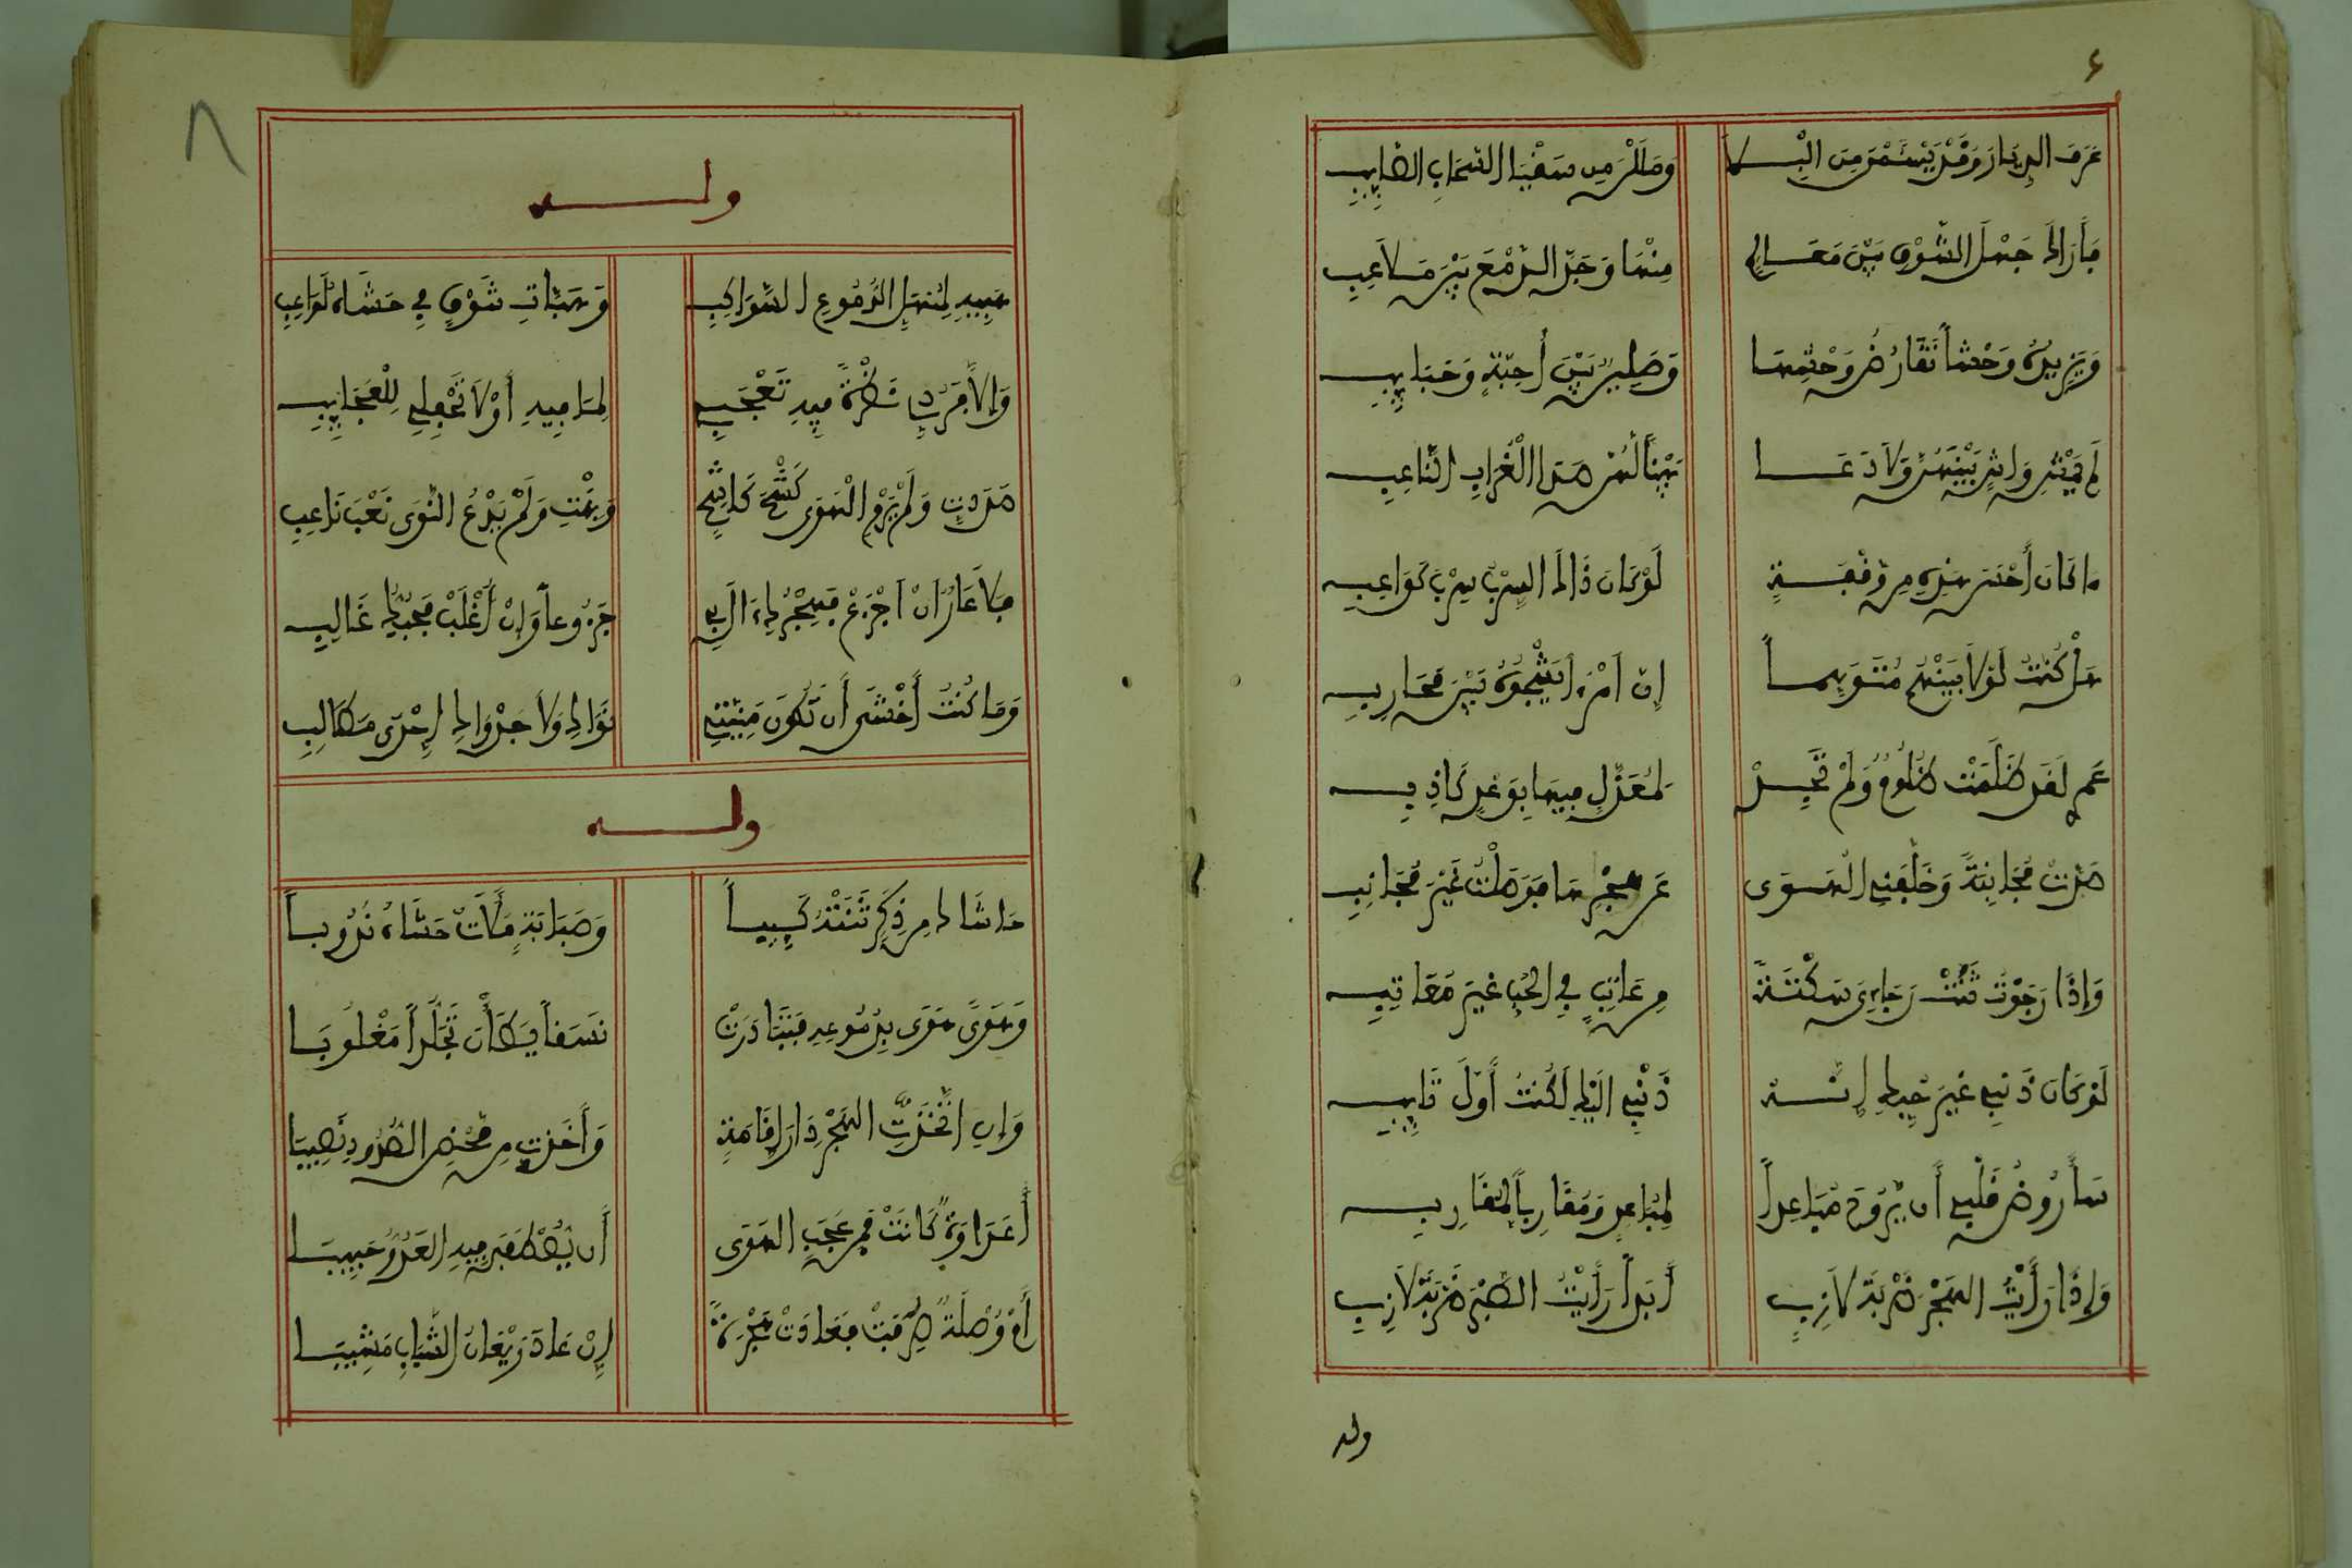 ٤
عَرَفَ الدِيَارَ وَقَدْ يَئِسْنَ مِنَ الْبِلَا وَمَلَلْنَ مِن سَقْيَا السَّحَابِ الصَّايِبِ
فَأَرَاكَ جَهْلَ الشَّوْقِ بَيْنَ مَعَالِمٍ مِنْهَا وَجَدَّ الدَّمْعَ بَيْنَ مَلَاعِبِ
وَيَزِيدُهُ وَحْشاً تَقَارُضُ وَحْشِهَا وَصْلَيْنِ بَيْنَ أَحِبَّةٍ وَحَبَايِبِ
لَمْ يَمْشِ وَاشٍ بَيْنَهُنَّ وَلَا دَعَا بَيْناً لَهُنَّ هَذَا الْغُرَابِ النَّاعِبِ
مَا كَانَ أَحْسَنَ هَذِهِ مِن وَقْفَةٍ لَوْ كَانَ ذَاكَ السِرْبُ سِرْبَ كَوَاعِبِ
هَلْ كُنْتَ لَوْلَا بَيْنُهُمْ مُتَوَهِّماً إِنّ امْرَءاً يَشْجُوهُ بَيْنُ مُحَارِبِ
عَمْرِي لَقَد ظَلَمَتْ ظَلُومُ وَلَمْ تَجُدْ لِمُعَذَّلٍ فِيهَا بِوَعْدٍ كَاذِبِ
صَدَّتْ مُجَانِبَةً وَخَلَّفَنِي الْهَوَى عَن هَجْرِهَا فَوَصَلْتُ غَيْرَ مُجَانِبِ
وَإِذَا رَجَوْتُ ثَنَتْ رَجَاءِى سَكْتَةٌ مِن عَاتِبٍ فِي الحُبِّ غَيْرَ مُعَاتِبِ
لَوْ كَانَ ذَنْبِي غَيْرَ حُبِّكِ إِنَّهُ ذَنْبِي الَيْكِ لَكُنْتُ أَوَّلَ تَايِبِ
سَأَرُوضُ قَلْبِي أَن يَرُوحَ مُبَاعِداً لِمُبَاعِدٍ وَمُقَارِباً لِمُقَارِبِ
وَإِذَا رَأَيْتُ الهَجْرَ ضَرْبَةَ لَازِبٍ أَبَداً رَأَيْتُ الصَّبْرَ ضَرْبَةَ لَازِبِ
وله
٨
وله
هَبِيهِ لِمُنْهَلِّ الدُّمُوعِ السَّوَاكِبِ وَهَبَّاتِ شَوْقٍ فِي حَشَاهُ لَوَاعِبِ
وَإِلاَّ فَرُدِّي نَظْرَةً فِيهِ تَعْجَبِي لِمَا فِيهِ أَوْ لَا تَحْفِلِي لِلْعَجَايِبِ
صَدَدْتِ وَلَمْ يَرْمِ الْهَوَى كَشْحَ كَاشِحٍ وَبِنْتِ وَلَمْ يَدْعُ النَّوَى نَعْبَ نَاعِبِ
فَلَا عَارُ انْ اجْزَعْ فَهَجْرُكِ ءَالَ بِي جَزُوعاً وَإِنْ أُغْلَبْ فَحُبُّكِ غَالِبِي
وَمَا كُنْتُ أَخْشَى أَن تَكُونَ مَنِيَّتِي نَوَاكِ وَلَا جَدْوَاكِ إِحْدَى مَطَالِبِي
وله
حَاشَاكِ مِن ذِكَرٍ ثَنَتْهُ كَئِيبَاً وَصَبَابَةٍ مَلَأَتْ حَشَاهُ نُدُوبَا
وَهَوًى هَوَى بِدُمُوعِهِ فَتَبَادَرَتْ نَسَقاً يَطَأْنَ تَجَلُّداً مَغْلُوبَا
وَإِنِ اتَّخَذْتِ الهَجْرَ دَارَ إِقَامَةٍ وَأَخَذْتِ مِن مَحْضِ الصُّدُودِ نَصِيبَا
أَعَدَاوَةٌ كَانَتْ فَمِن عَجَبِ الهَوَى أَن يُصْطَفَى فِيهِ العَدُوُّ حَبِيبَا
أَمْ وُصْلَةٌ صُرِفَتْ فَعَادَتْ هَجْرَةً إِنْ عَادَ رَيْعَانُ الشَّبَابِ مَشِيبَا